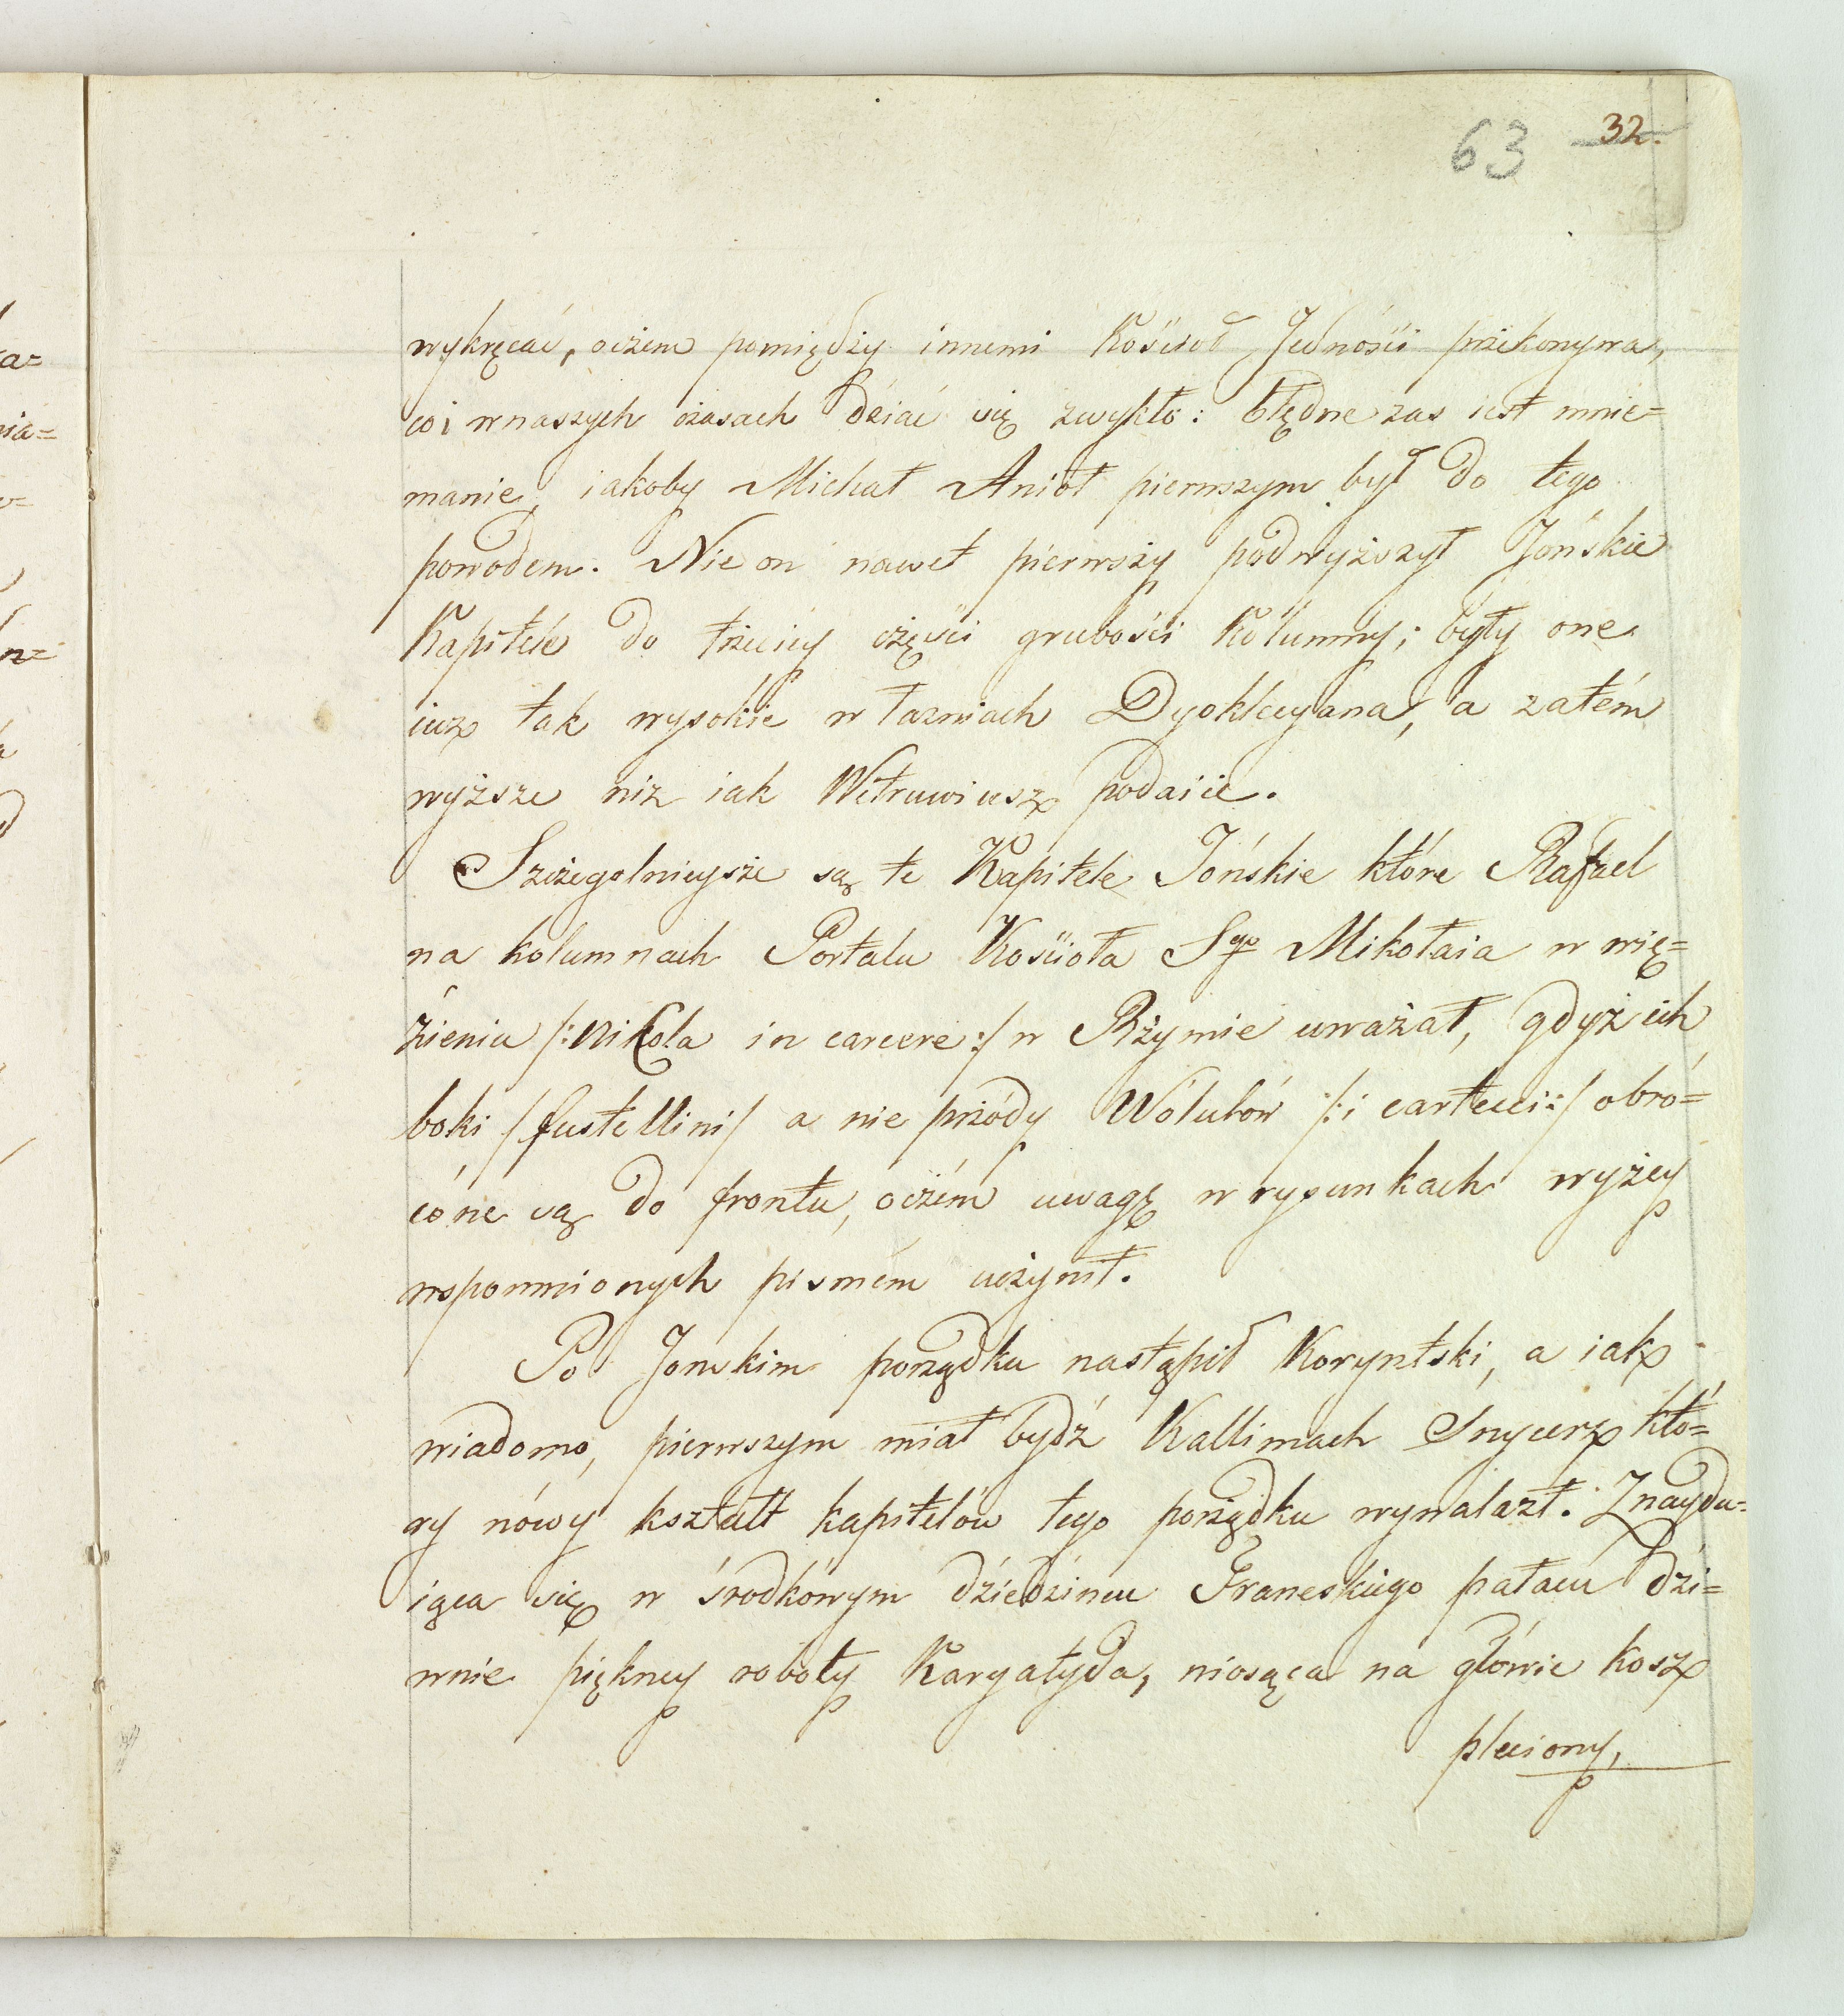 63 32.
wykręcać, oczem pomiędzy innemi Kościoł Jedności przekonywa,
co i w naszych czasach dziać się zwykło: błędne zas iest mnie=
manie, iakoby Michał Anioł pierwszym był do tego
powodem. Nie on nawet pierwszy podwyższył Jońskie
Kapitele do trzeciey części grubości Kolumny; były one
iuż tak wysokie w łazniach Dyoklecyana, a zatém
wyższe niz iak Witruwiusz podaie.
Szczegolnieysze są te Kapitele Jońskie które Rafael
na kolumnach Portalu Kościoła Sgo Mikołaia w wię=
zieniu /: Nikola in carcere :/ w Rzymie uważał, gdyż ich
boki / fustellini / a nie przódy Wolutów /: i cartecci :/ obró=
cóne są do frontu, oczém uwagę w rysunkach wyżey
wspomnionych pismem uczynił.
Po Jonskim porządku nastąpił Koryntski, a iak
wiadomo, pierwszym miał bydź Kallimach Snycerz któ=
ry nówy kształt kapitelów tego porządku wynalazł. Znaydu=
iąca się w środkówym dziedzińcu Franeskiego pałacu dzi=
wnie piękney roboty Karyatyda, niosąca na głowie kosz
pleciony,